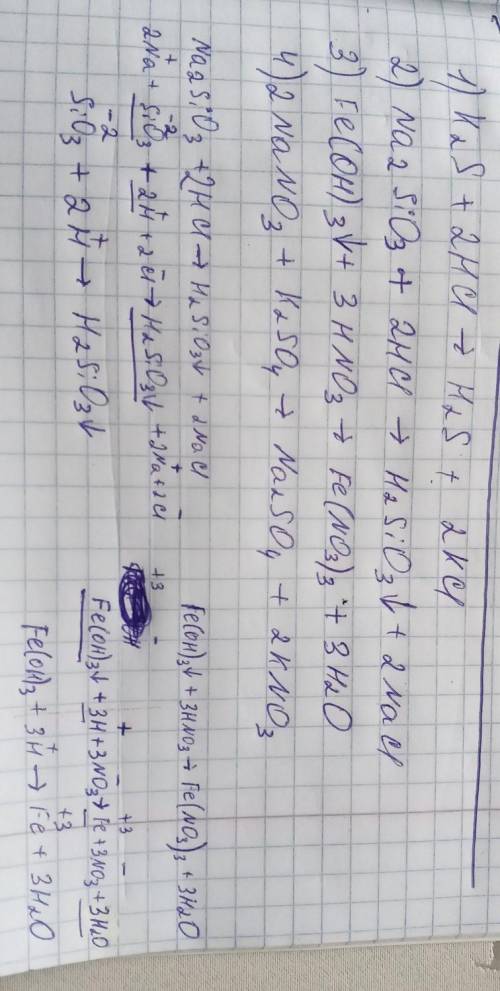 1) K2S + 2HCl → H2S + 2KCl
2) Na2SiO3 + 2HCl → H2SiO3↓ + 2NaCl
3) Fe(OH)3↓ + 3HNO3 → Fe(NO3)3 + 3H2O
4) 2NaNO3 + K2SO4 → Na2SO4 + 2KNO3
Na2SiO3 + 2HCl → H2SiO3↓ + 2NaCl
2Na⁺ + SiO3⁻² + 2H⁺ + 2Cl⁻ → H2SiO3↓ + 2Na⁺ + 2Cl⁻
SiO3⁻² + 2H⁺ → H2SiO3↓
Fe(OH)3↓ + 3HNO3 → Fe(NO3)3 + 3H2O
+3 -
Fe(OH)3↓ + 3H⁺ + 3NO3⁻ → Fe⁺³ + 3NO3⁻ + 3H2O
Fe(OH)3 + 3H⁺ → Fe⁺³ + 3H2O